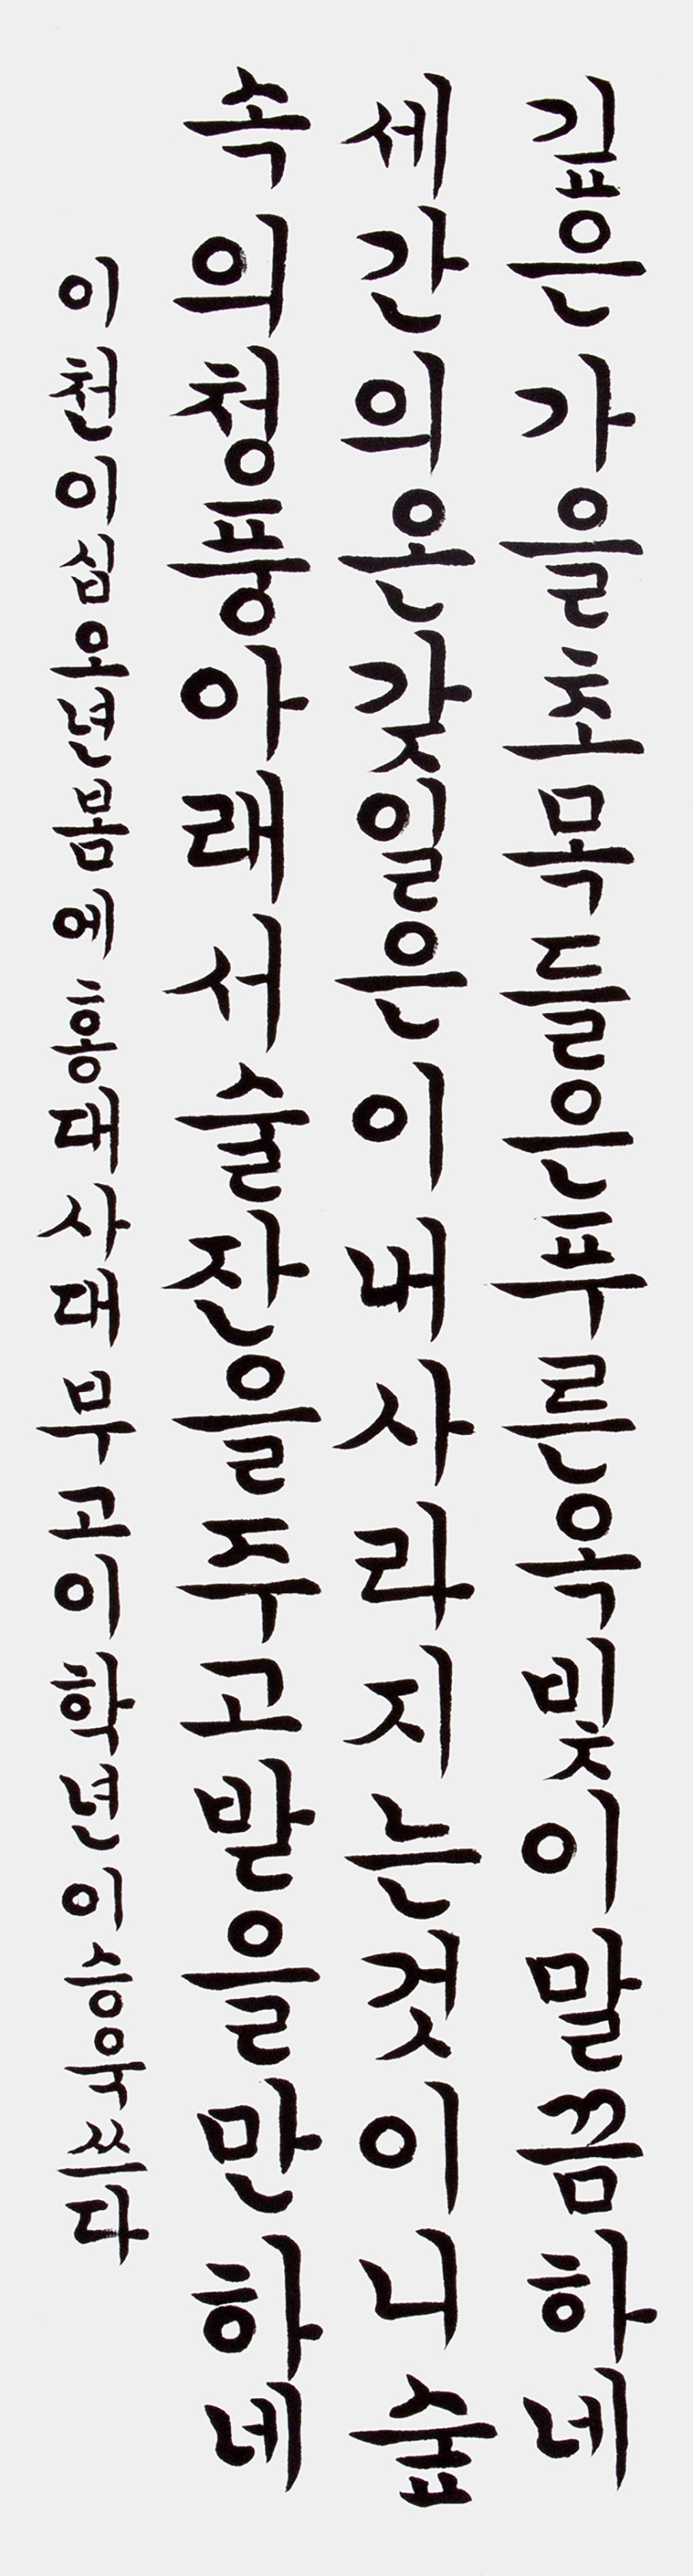 깊은가을초목들은푸른옥빛이말끔하네
세간의온갖일은이내사라지는것이니숲
속의청풍아래서술잔을주고받을만하네
이천이십오년봄에홍대사대부고이학년이승욱쓰다